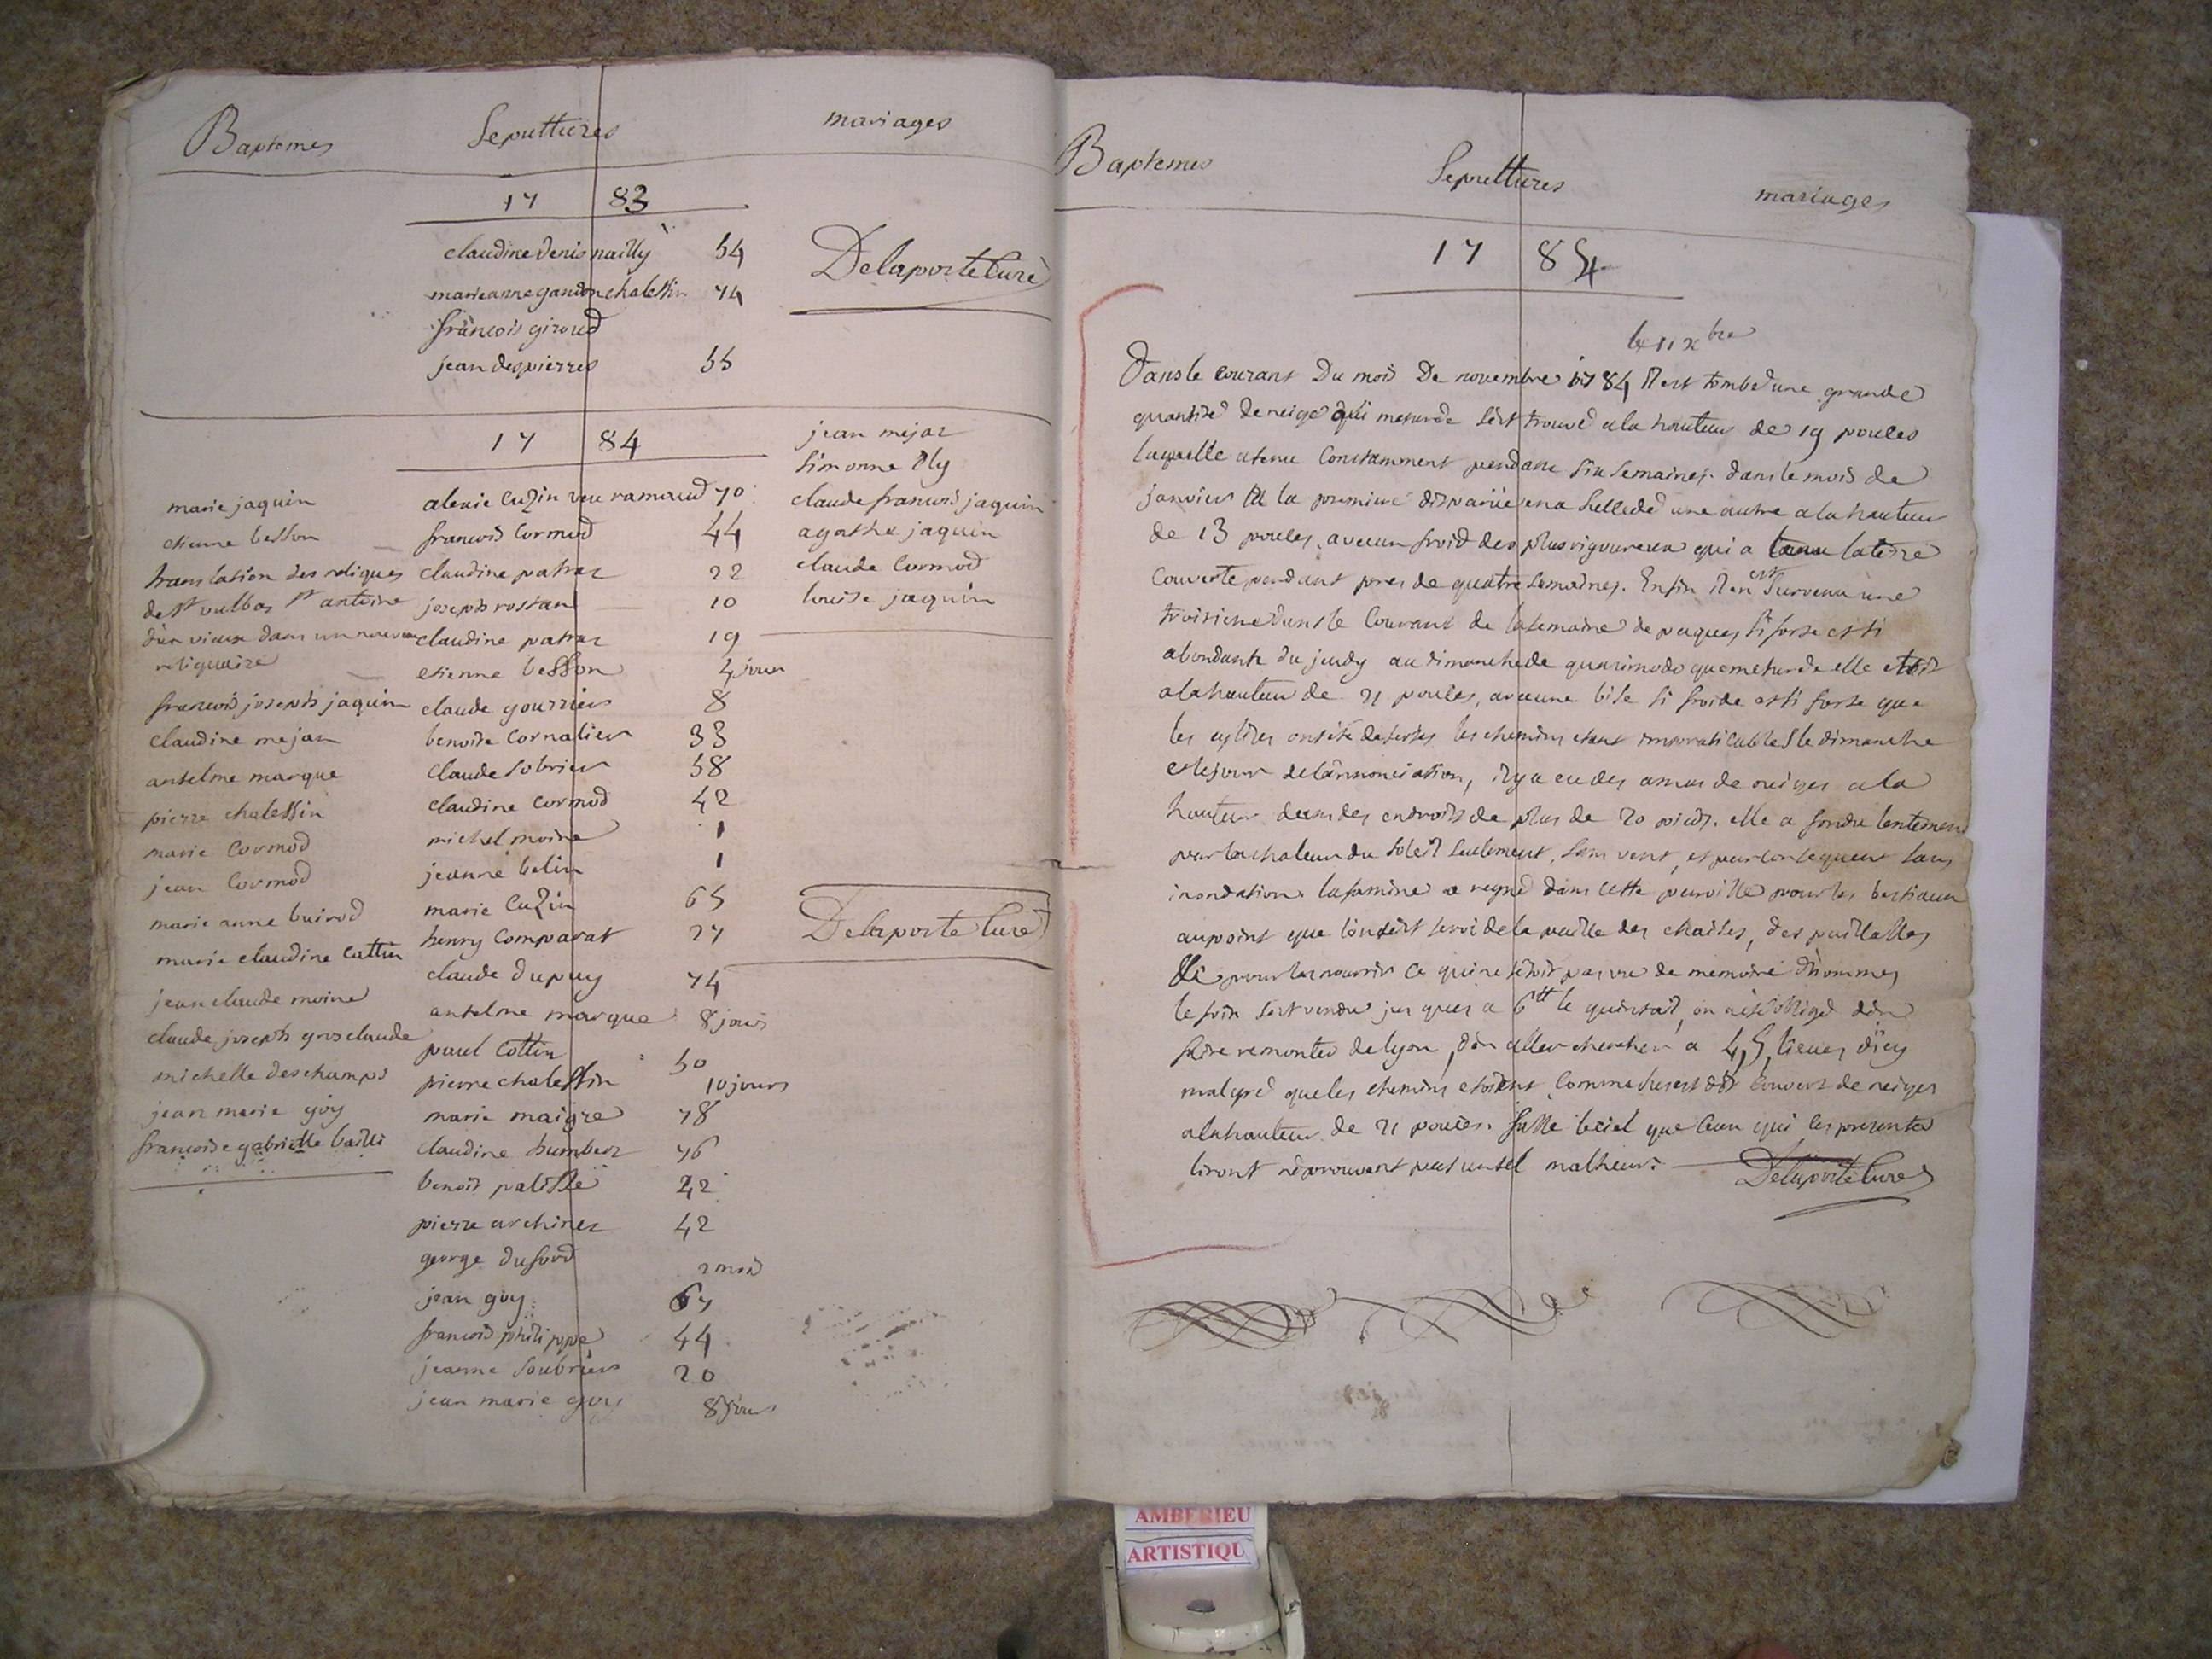 Baptemes Sepultures mariages
17 83
claudine denis nailly 54
marieanne gandon chalessin 74
francois giroud
jean despierres 55
Delaporte Curé
17 84
marie jaquin
etienne besson
translation des reliques
de st vulbas st antoine
d'un vieux dans un nouveau
reliquaire
francois joseph jaquin
claudine mejan
antelme marque
pierre chalessin
marie Cormod
jean Cormod
marie anne buirod
marie claudine Cattin
jean claude moine
claude joseph grosclaude
michelle deschamps
jean marie goy
francoise gabrielle bailli
alexie Cuzin veu ramaud 70
francois Cormod 44
claudine patraz 22
joseph rostand 10
claudine patraz 19
etienne besson 4 jours
claude gourrier 8
benoite Cornalier 33
claude Sobrier 58
claudine Cormod 42
michel moine 1
jeanne belin 1
marie Cuzin 65
henry Comparat 27
claude Dupuy 74
antelme marque 8 jours
paul Cottin 50
pierre chalessin 10 jours
marie maigre 78
claudine humber 76
benoit palisse 22
pierre archiner 42
george Duford 2 mois
jean goy 67
francois philippe 44
jeanne Soubrier 20
jean marie goy 8 jours
jean mejaz
Simonne
claude francois jaquin
agathe jaquin
claude Cormod
louise jaquin
Delaporte Curé
Baptemes Sepultures mariages
17 84
le 11 xbre
Dans le courant Du mois De novembre 1784 il est tombé une grande
quantité de neige qui mesurée s'est trouvé a la hauteur de 19 pouces
laquelle a tenu Constamment pendant six semaines. dans le mois de
janvier la premiere disparüe en a succedé une autre a la hauteur
de 13 pouces, avec un froid des plus vigoureux qui a tenu la terre
Couverte pendant pres de quatre semaines. Enfin il en est survenu une
troisieme dans le Courant de la semaine de paques si forte et si
abondante du jeudy au dimanche de quasimodo que mesurée elle etoit
a la hauteur de 21 pouces, avec une bise si froide et si forte que
les eglises ont été desertes les chemins etant impraticables le dimanche
et le jour de l'annonciation, il y a eu des amas de neiges a la
hauteur dans des endroits de plus de 20 pieds. elle a fondu lentement
par la chaleur du soleil seulement, sans vent, et par consequent sans
inondation. la famine a regné dans cette paroisse pour les bestiaux
au point que l'on s'est servi de la paille des chaises, des paillasses
pour les nourrir ce qui ne s'etoit pas vu de memoire d'hommes
le foin s'est vendu jusques a 6tt le quintal, on a été obligé d'en
faire remonter de lyon, d'en aller chercher a 4, 5, lieues d'icy
malgré que les chemins etoient Comme dessus est dit couvert de neiges
a la hauteur de 21 pouces. fasse le ciel que ceux qui les presentes
liront n'eprouvent pas un tel malheur. Delaporte Curé
AMBERIEU
ARTISTIQU